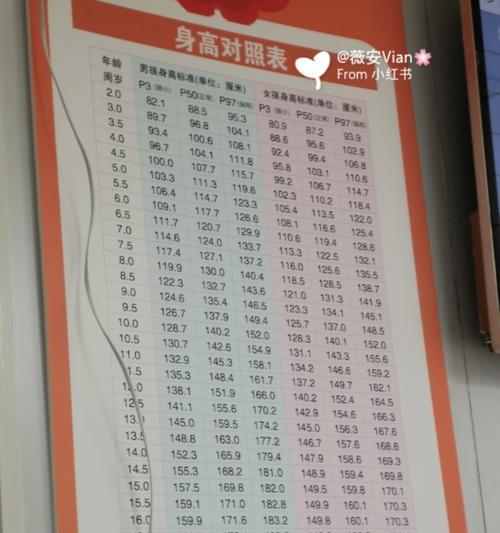 身高对照表
@薇安Vian
From 小红书
年龄 男孩身高标准(单位：厘米) 女孩身高标准(单位：厘米)
周岁 P3(矮小) P50(正常) P97(偏高) P3(矮小) P50(正常) P97(偏高)
2.0 82.1 88.5 95.3 80.9 87.2 93.9
3.0 89.7 96.8 104.1 88.6 95.6 102.9
3.5 93.4 100.6 108.1 92.4 99.4 106.8
4.0 96.7 104.1 111.8 95.8 103.1 110.6
4.5 100.0 107.7 115.7 99.2 106.7 114.7
5.0 103.3 111.3 119.6 102.3 110.2 118.4
5.5 106.4 114.7 123.3 105.4 113.5 122.0
6.0 109.1 117.7 126.6 108.1 116.6 125.4
6.5 111.7 120.7 129.9 110.6 119.4 128.6
7.0 114.6 124.0 133.7 113.3 122.5 132.1
7.5 117.4 127.1 137.2 116.0 125.6 135.5
8.0 119.9 130.0 140.4 118.5 128.5 138.7
8.5 122.3 132.7 143.6 121.0 131.3 141.9
9.0 124.6 135.4 146.5 123.3 134.1 145.1
9.5 126.7 137.9 149.4 125.7 137.0 148.5
10.0 128.7 140.2 152.0 128.3 140.1 152.0
10.5 130.7 142.6 154.9 131.1 143.3 155.6
11.0 132.9 145.3 158.1 134.2 146.6 159.2
1.5 135.3 148.4 161.7 137.2 149.7 162.1
12.0 138.1 151.9 166.0 140.2 152.4 164.5
12.5 141.1 155.6 170.2 142.9 154.6 166.3
13.0 145.0 159.5 174.2 145.0 156.3 167.6
13.5 148.8 163.0 177.2 146.7 157.6 168.6
14.0 152.3 165.9 179.4 147.9 158.6 169.3
14.5 155.3 168.2 181.0 148.9 159.4 169.8
15.0 157.5 169.8 182.0 149.5 159.8 170.1
15.5 159.1 171.0 182.8 149.8 160.1 170.3
16.0 159.9 171.6 183.2 149.8 160.1 170.3